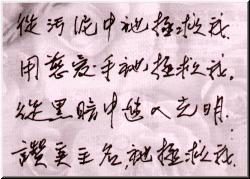 從污泥中祂拯救我.
用慈愛手祂拯救我.
從黑暗中進入光明.
讚美主名祂拯救我.